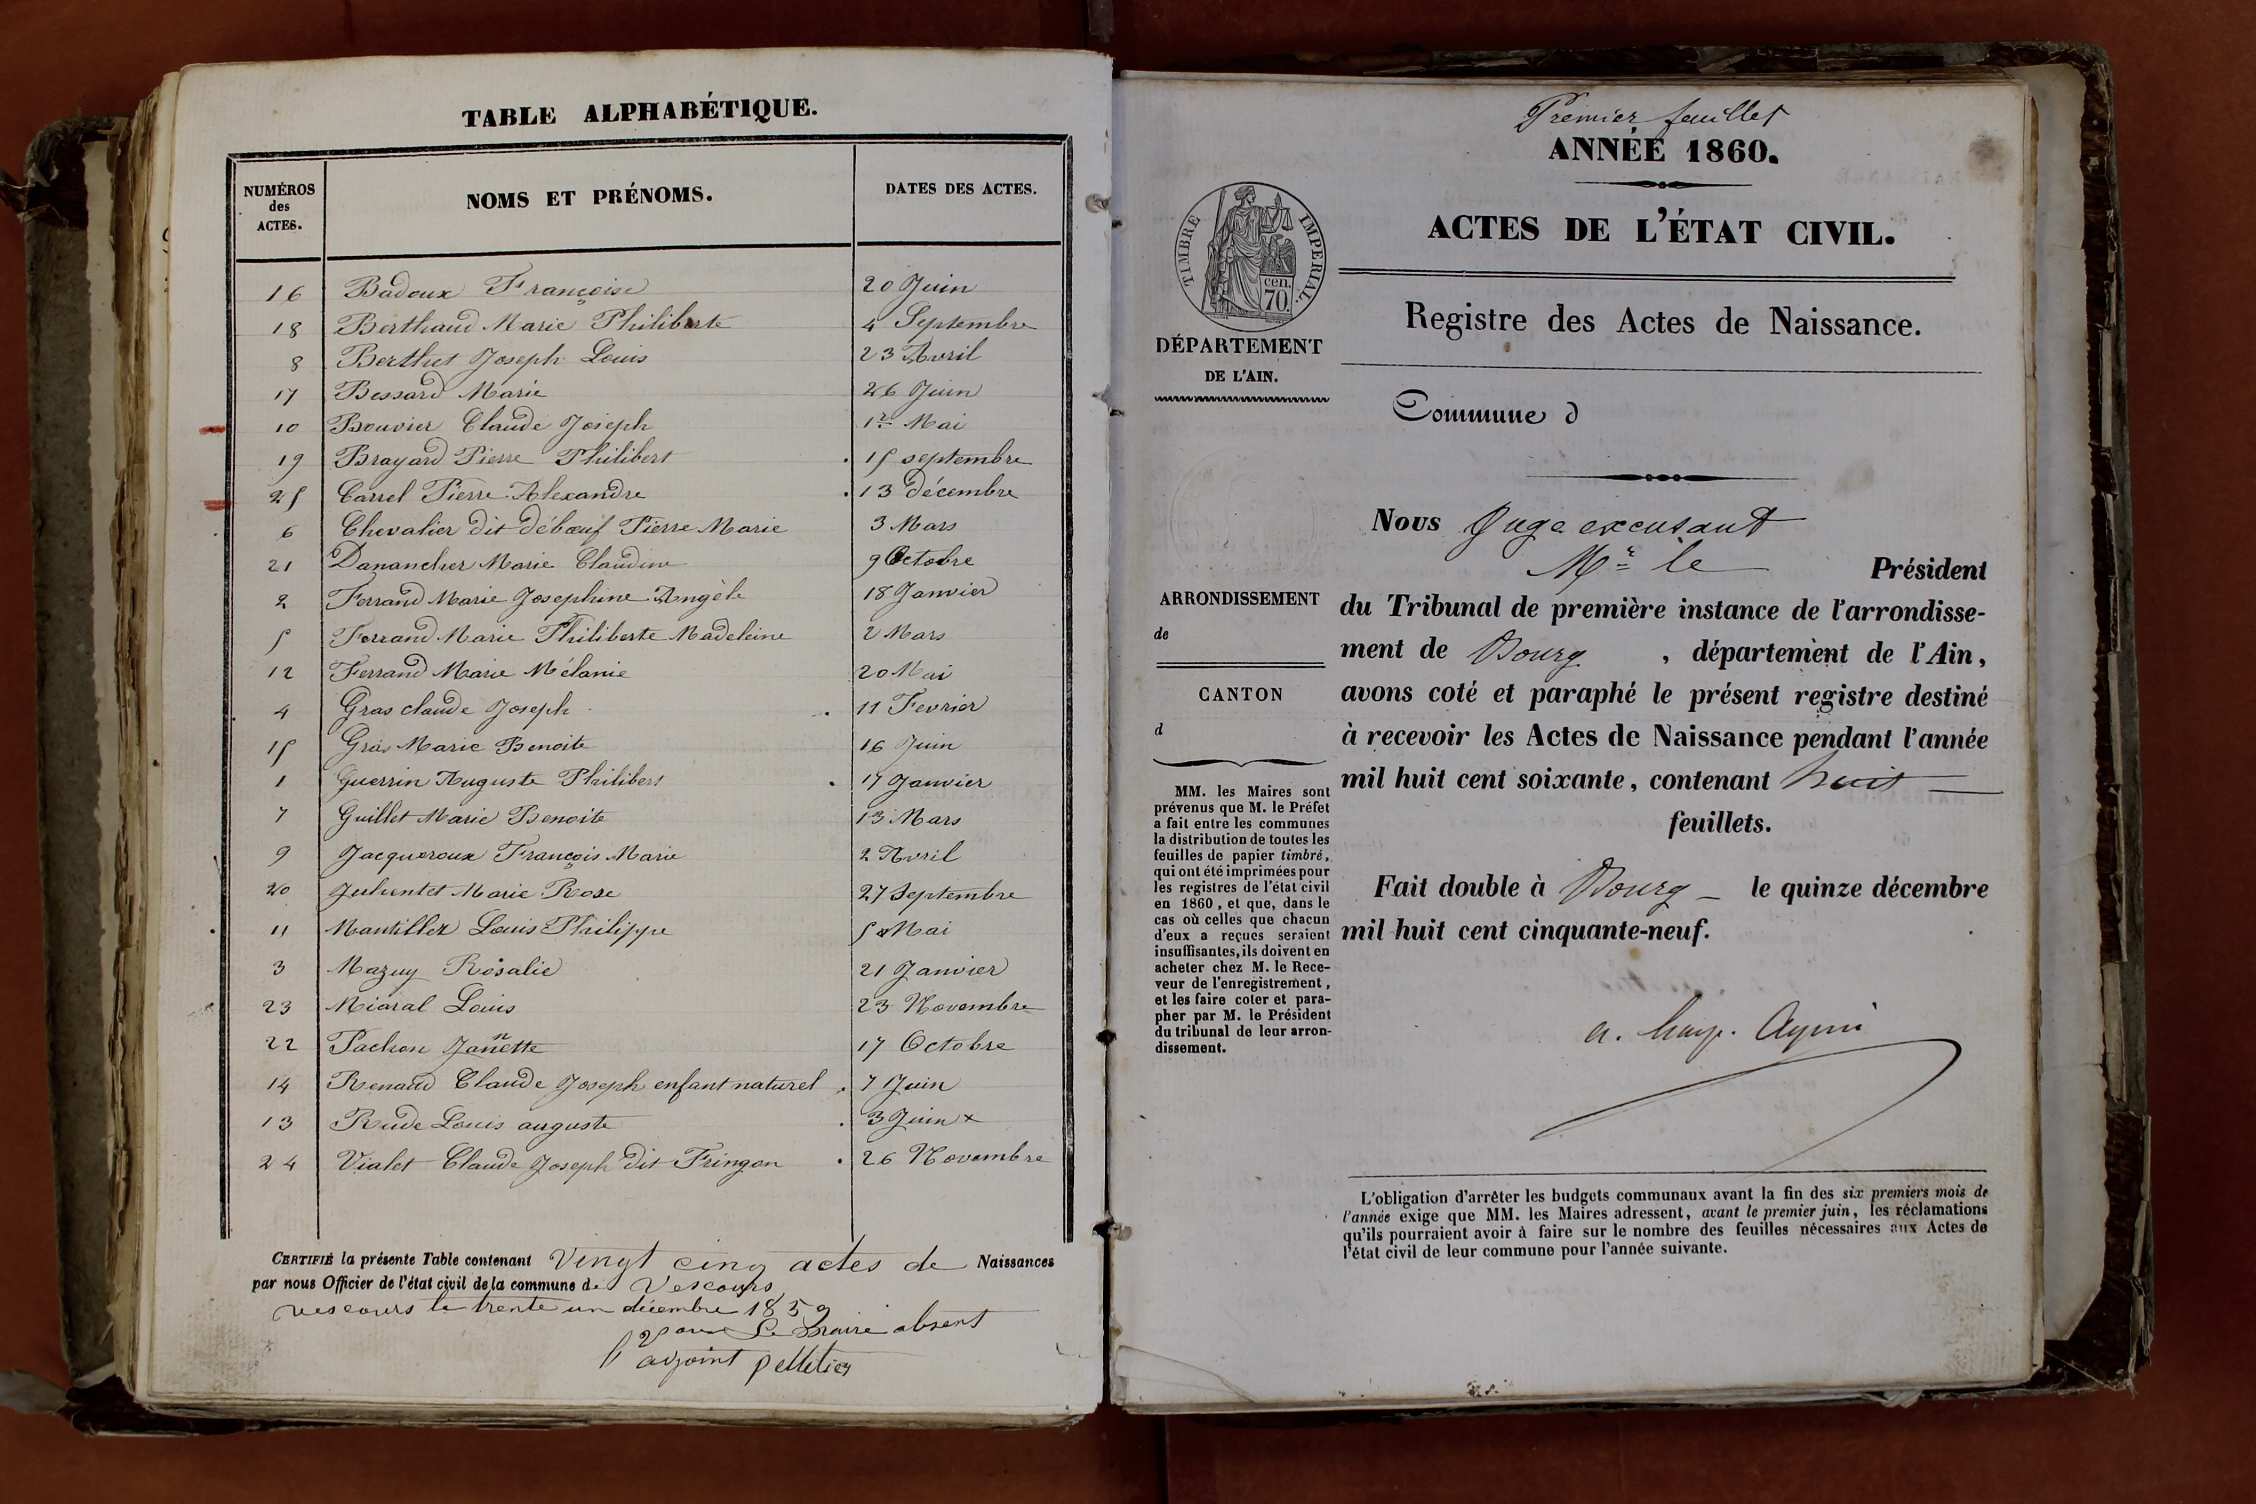 TABLE ALPHABÉTIQUE.
NUMÉROS des ACTES. NOMS ET PRÉNOMS. DATES DES ACTES.
16 Badoux Françoise 20 Juin
18 Berthaud Marie Philiberte 4 Septembre
8 Berthet Joseph Louis 23 Avril
17 Bessard Marie 26 Juin
10 Bouvier Claude Joseph 1er Mai
19 Brayard Pierre Philibert 15 septembre
25 Carrel Pierre Alexandre 13 décembre
6 Chevalier dit débœuf Pierre Marie 3 Mars
21 Danancher Marie Claudine 9 Octobre
2 Ferrand Marie Josephine Angèle 18 Janvier
5 Ferrand Marie Philiberte Madeleine 2 Mars
12 Ferrand Marie Mélanie 20 Mai
4 Gras claude Joseph 11 Fevrier
15 Gras Marie Benoite 16 Juin
1 Guerrin Auguste Philibert 17 Janvier
7 Guillet Marie Benoite 13 Mars
9 Jacqueroux François Marie 2 Avril
20 Marie Rose 27 Septembre
11 Mantillex Louis Philippe 5 Mai
3 Mazuy Rosalie 21 Janvier
23 Miaral Louis 23 Novembre
22 Pachon Janette 17 Octobre
14 Renaud Claude Joseph enfant naturel 7 Juin
13 Rude Louis auguste 3 Juin x
24 Vialet Claude Joseph dit Fringon 26 Novembre
CERTIFIÉ la présente Table contenant Vingt cinq actes de Naissances
par nous Officier de l'état civil de la commune de Vescours
vescours le trente un décembre 1859
Pour Le Maire absent
l'adjoint pelletier
Premier feuillet
ANNÉE 1860.
ACTES DE L'ÉTAT CIVIL.
TIMBRE IMPERIAL.
cen. 70.
Registre des Actes de Naissance.
DÉPARTEMENT
DE L'AIN.
Commune d
Nous Juge excusant
Mr le Président
du Tribunal de première instance de l'arrondisse-
ment de Bourg, département de l'Ain,
avons coté et paraphé le présent registre destiné
à recevoir les Actes de Naissance pendant l'année
mil huit cent soixante, contenant huit
feuillets.
Fait double à Bourg le quinze décembre
mil huit cent cinquante-neuf.
ARRONDISSEMENT
de
CANTON
d
MM. les Maires sont
prévenus que M. le Préfet
a fait entre les communes
la distribution de toutes les
feuilles de papier timbré,
qui ont été imprimées pour
les registres de l'état civil
en 1860, et que, dans le
cas où celles que chacun
d'eux a reçues seraient
insuffisantes, ils doivent en
acheter chez M. le Rece-
veur de l'enregistrement,
et les faire coter et para-
pher par M. le Président
du tribunal de leur arron-
dissement.
L'obligation d'arrêter les budgets communaux avant la fin des six premiers mois de
l'année exige que MM. les Maires adressent, avant le premier juin, les réclamations
qu'ils pourraient avoir à faire sur le nombre des feuilles nécessaires aux Actes de
l'état civil de leur commune pour l'année suivante.